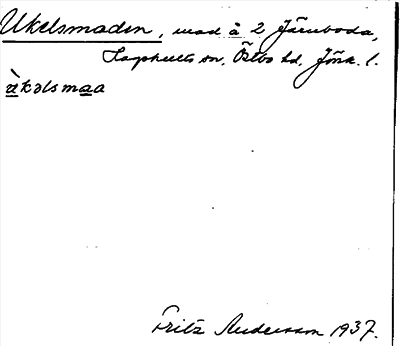 Ukelsmaden, mad å 2 Järnboda,
Haghults sn, Östbo hd, Jönk. l.
ùkəlsmaa
Fritz Andersson 1937.